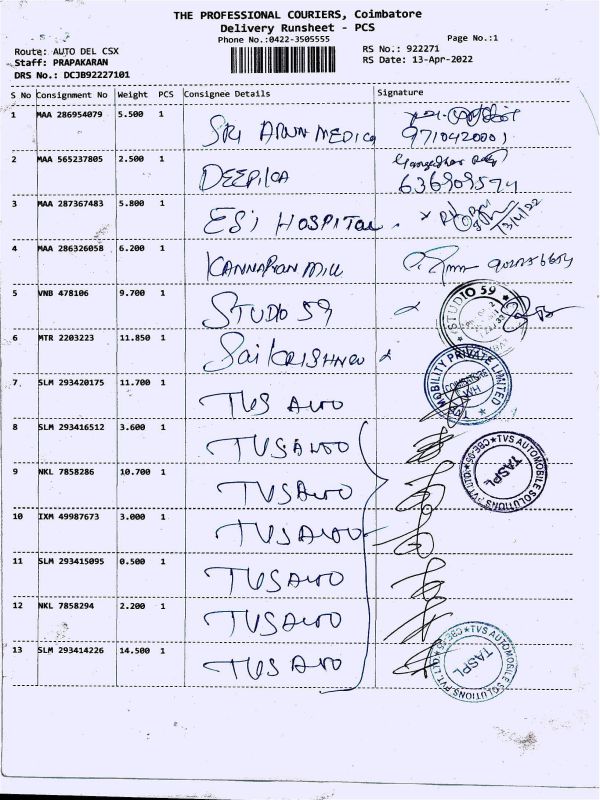 THE PROFESSIONAL COURIERS, Coimbatore
Delivery Runsheet - PCS
Phone No.:0422-3505555
Page No.:1
Route: AUTO DEL CSX
RS No.: 922271
Staff: PRAPAKARAN
RS Date: 13-Apr-2022
DRS No.: DCJB92227101
S No Consignment No Weight PCS Consignee Details Signature
1 MAA 286954079 5.500 1 SRI ARUN MEDICA
9710420001
2 MAA 565237805 2.500 1 DEEPIKA
636909574
3 MAA 287367483 5.800 1 ESI HOSPITAL
13/4/22
4 MAA 286326058 6.200 1 KANNAPIRAN MILL
5 VNB 478106 9.700 1 STUDIO 59
STUDIO 59
6 MTR 2203223 11.850 1 Sai KRISHNA
MOBILITY PRIVATE LIMITED
COIMBATORE
WH
7 SLM 293420175 11.700 1 TVS AUTO
8 SLM 293416512 3.600 1 TVS AUTO
TVS AUTOMOBILE SOLUTIONS PVT. LTD. CBE-05
TASPL
9 NKL 7858286 10.700 1 TVS AUTO
10 IXM 49987673 3.000 1 TVS AUTO
11 SLM 293415095 0.500 1 TVS AUTO
12 NKL 7858294 2.200 1 TVS AUTO
13 SLM 293414226 14.500 1 TVS AUTO
TVS AUTOMOBILE SOLUTIONS PVT. LTD CBE-05
TASPL